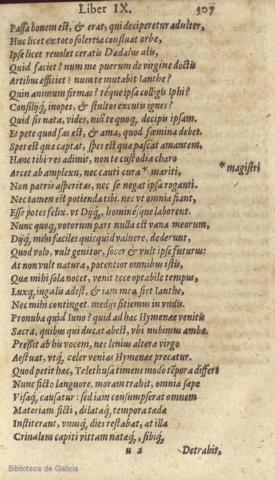 Liber IX. 307
Passa bovem est, & erat, qui deciperetur adulter,
Huc licet ex toto solertia confluat orbe,
Ipse licet revolet ceratis Dædalus alis,
Quid faciet? num me puerum de virgine doctis
Artibus efficiet? num te mutabit Ianthe?
Quin animum firmas? teque ipsa colligis Iphi?
Consilijq́, inopes, & stultos excutis ignes?
Quid sis nata, vides, nisi te quoq, decipis ipsam.
Et pete quod fas est, & ama, quod fœmina debet.
Spes est quæ captat, spes est quæ pascat amantem,
Hanc tibi res adimit, non te custodia charo
Arcet ab amplexu, nec cauti cura * mariti,
* magistri
Non patris asperitas, nec se negat ipsa roganti.
Nec tamen est potienda tibi. nec vt omnia fiant,
Esse potes felix. vt Dijq́, hominesque laborent.
Nunc quoq, votorum pars nulla est vana meorum,
Dijq́, mihi faciles quicquid valuere, dederunt,
Quod volo, vult genitor, socer & vult ipse futurus:
At non vult natura, potentior omnibus istis,
Quæ mihi sola nocet, venit ecce optabile tempus,
Luxq́, iugalis adest, & iam mea fiet Ianthe,
Nec mihi continget. medijs sitiemus in vndis.
Pronuba quid Iuno? quid ad hæc Hymenæe venitis
Sacra, quibus qui ducat abest, vbi nubimus ambæ.
Pressit ab his vocem, nec lenius altera virgo
Aestuat, vtq́, celer venias Hymenæe precatur.
Quod petit hæc, Telethusa timens modo tẽpora differt
Nunc ficto languore. moram trahit, omnia sæpe
Visaq́, causatur: sed iam consumpserat omnem
Materiam ficti, dilataq́, tempora tædæ
Institerant, vnusq́, dies restabat, at illa
Crinalem capiti vittam natæq́, sibiq́,
u 2 Detrahit,
Biblioteca de Galicia